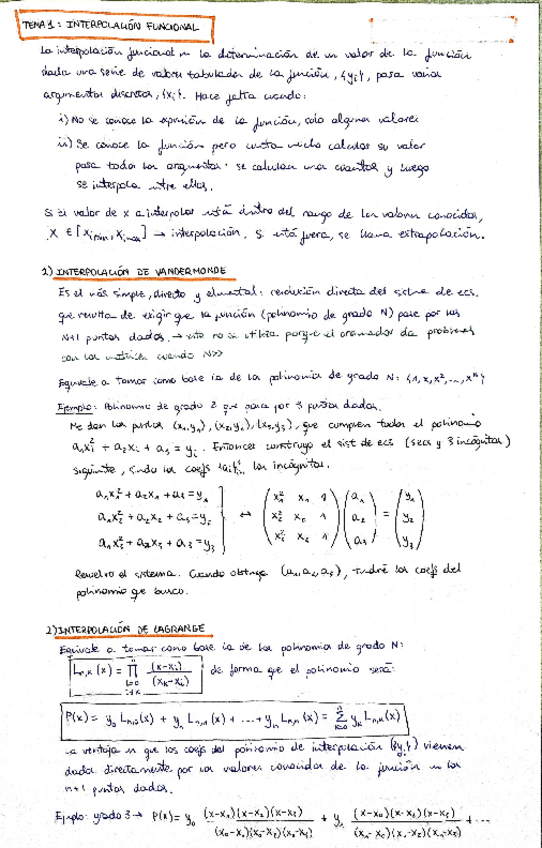 TEMA 1: INTERPOLACIÓN FUNCIONAL
La interpolación funcional es la determinación de un valor de la función
dada una serie de valores tabulados de la función, {yᵢ}, para varios
argumentos discretos, {xᵢ}. Hace falta cuando:
i) No se conoce la expresión de la función, solo algunos valores
ii) Se conoce la función pero cuesta mucho calcular su valor
para todos los argumentos: se calculan unos cuantos y luego
se interpola entre ellos.
Si el valor de x a interpolar está dentro del rango de los valores conocidos,
x ∈ [xᵢmin, xᵢmax] → interpolación. Si está fuera, se llama extrapolación.
1) INTERPOLACIÓN DE VANDERMONDE
Es el más simple, directo y elemental: resolución directa del sistema de ecs.
que resulta de exigir que la función (polinomio de grado N) pase por los
N+1 puntos dados. → esto no se utiliza porque el ordenador da problemas
con las matrices cuando N>>
Equivale a tomar como base la de los polinomios de grado N: {1, x, x², ..., xᴺ}
Ejemplo: Polinomio de grado 2 que pasa por 3 puntos dados.
Me dan los puntos (x₁,y₁), (x₂,y₂), (x₃,y₃), que cumplen todos el polinomio
a₁xᵢ² + a₂xᵢ + a₃ = yᵢ. Entonces construyo el sist de ecs (3 ecs y 3 incógnitas)
siguiente, siendo los coefs {aᵢ} las incógnitas.
a₁x₁² + a₂x₁ + a₃ = y₁ (x₁² x₁ 1) (a₁) (y₁)
a₁x₂² + a₂x₂ + a₃ = y₂ ↔ (x₂² x₂ 1) (a₂) = (y₂)
a₁x₃² + a₂x₃ + a₃ = y₃ (x₃² x₃ 1) (a₃) (y₃)
Resuelvo el sistema. Cuando obtenga (a₁, a₂, a₃), tendré los coefs del
polinomio que busco.
2) INTERPOLACIÓN DE LAGRANGE
Equivale a tomar como base la de los polinomios de grado N:
Lₙ,ₖ(x) = ∏ⁿ i=0 i≠k (x-xᵢ)/(xₖ-xᵢ) de forma que el polinomio será:
P(x) = y₀ Lₙ,₀(x) + y₁ Lₙ,₁(x) + ... + yₙ Lₙ,ₙ(x) = Σⁿ k=0 yₖ Lₙ,ₖ(x)
La ventaja es que los coefs del polinomio de interpolación ({yᵢ}) vienen
dados directamente por los valores conocidos de la función en los
n+1 puntos dados.
Ejemplo: grado 3 → P(x) = y₀ (x-x₁)(x-x₂)(x-x₃)/(x₀-x₁)(x₀-x₂)(x₀-x₃) + y₁ (x-x₀)(x-x₂)(x-x₃)/(x₁-x₀)(x₁-x₂)(x₁-x₃) + ...